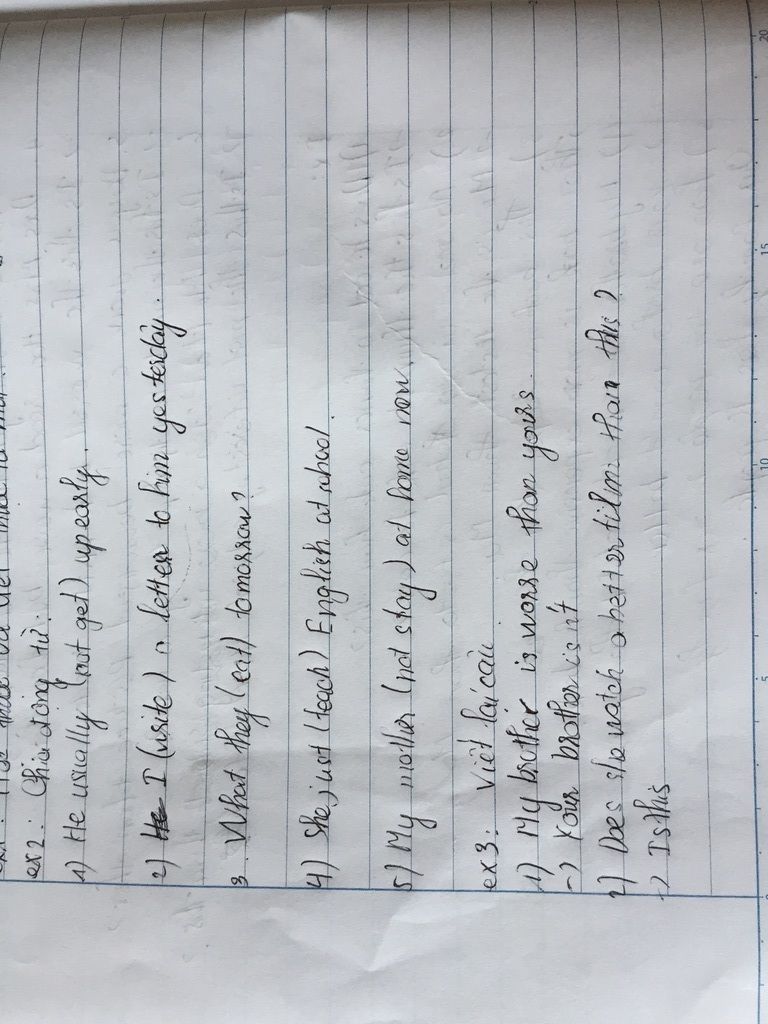 ex2: Chia động từ:
1) He usually (not get) up early.
2) I (write) a letter to him yesterday.
3. What they (eat) tomorrow?
4) She just (teach) English at school.
5) My mother (not stay) at home now.
ex3: Viết lại câu
1) My brother is worse than yours.
-) Your brother isn't
2) Does she watch a better film than this?
-) Is this
20
15
10
5
0